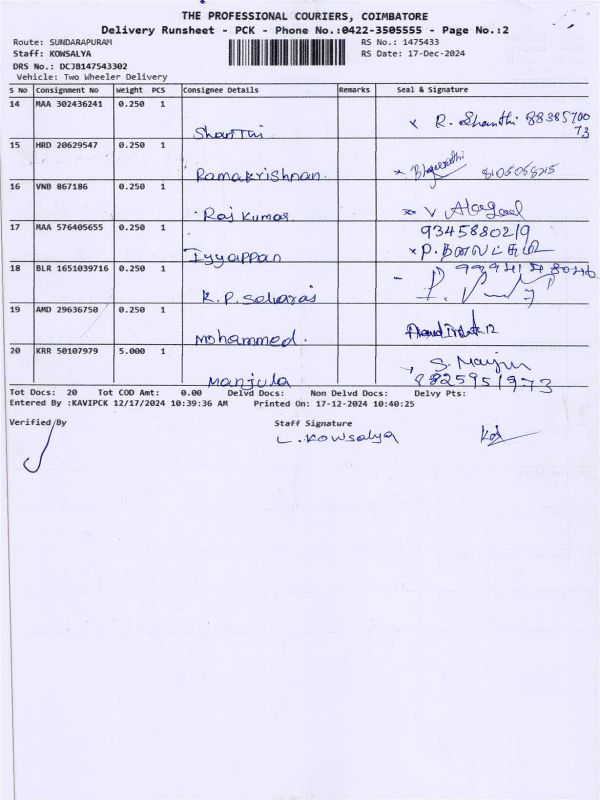 THE PROFESSIONAL COURIERS, COIMBATORE
Delivery Runsheet - PCK - Phone No.:0422-3505555 - Page No.:2
Route: SUNDARAPURAM
RS No.: 1475433
Staff: KOWSALYA
RS Date: 17-Dec-2024
DRS No.: DCJB147543302
Vehicle: Two Wheeler Delivery
S No Consignment No Weight PCS Consignee Details Remarks Seal & Signature
14 MAA 302436241 0.250 1
Shanthi x R. Shanthi 8838570073
15 HRD 20629547 0.250 1
Ramakrishnan. x 8105058215
16 VNB 867186 0.250 1
Raj Kumar x V
17 MAA 576405655 0.250 1 9345880219
Iyyappan x P.
18 BLR 1651039716 0.250 1
K.P. P.
19 AMD 29636750 0.250 1
Mohammed.
20 KRR 50107979 5.000 1 S.
Manjula 8825951973
Tot Docs: 20 Tot COD Amt: 0.00 Delvd Docs: Non Delvd Docs: Delvy Pts:
Entered By :KAVIPCK 12/17/2024 10:39:36 AM Printed On: 17-12-2024 10:40:25
Verified/By Staff Signature
L. Kowsalya